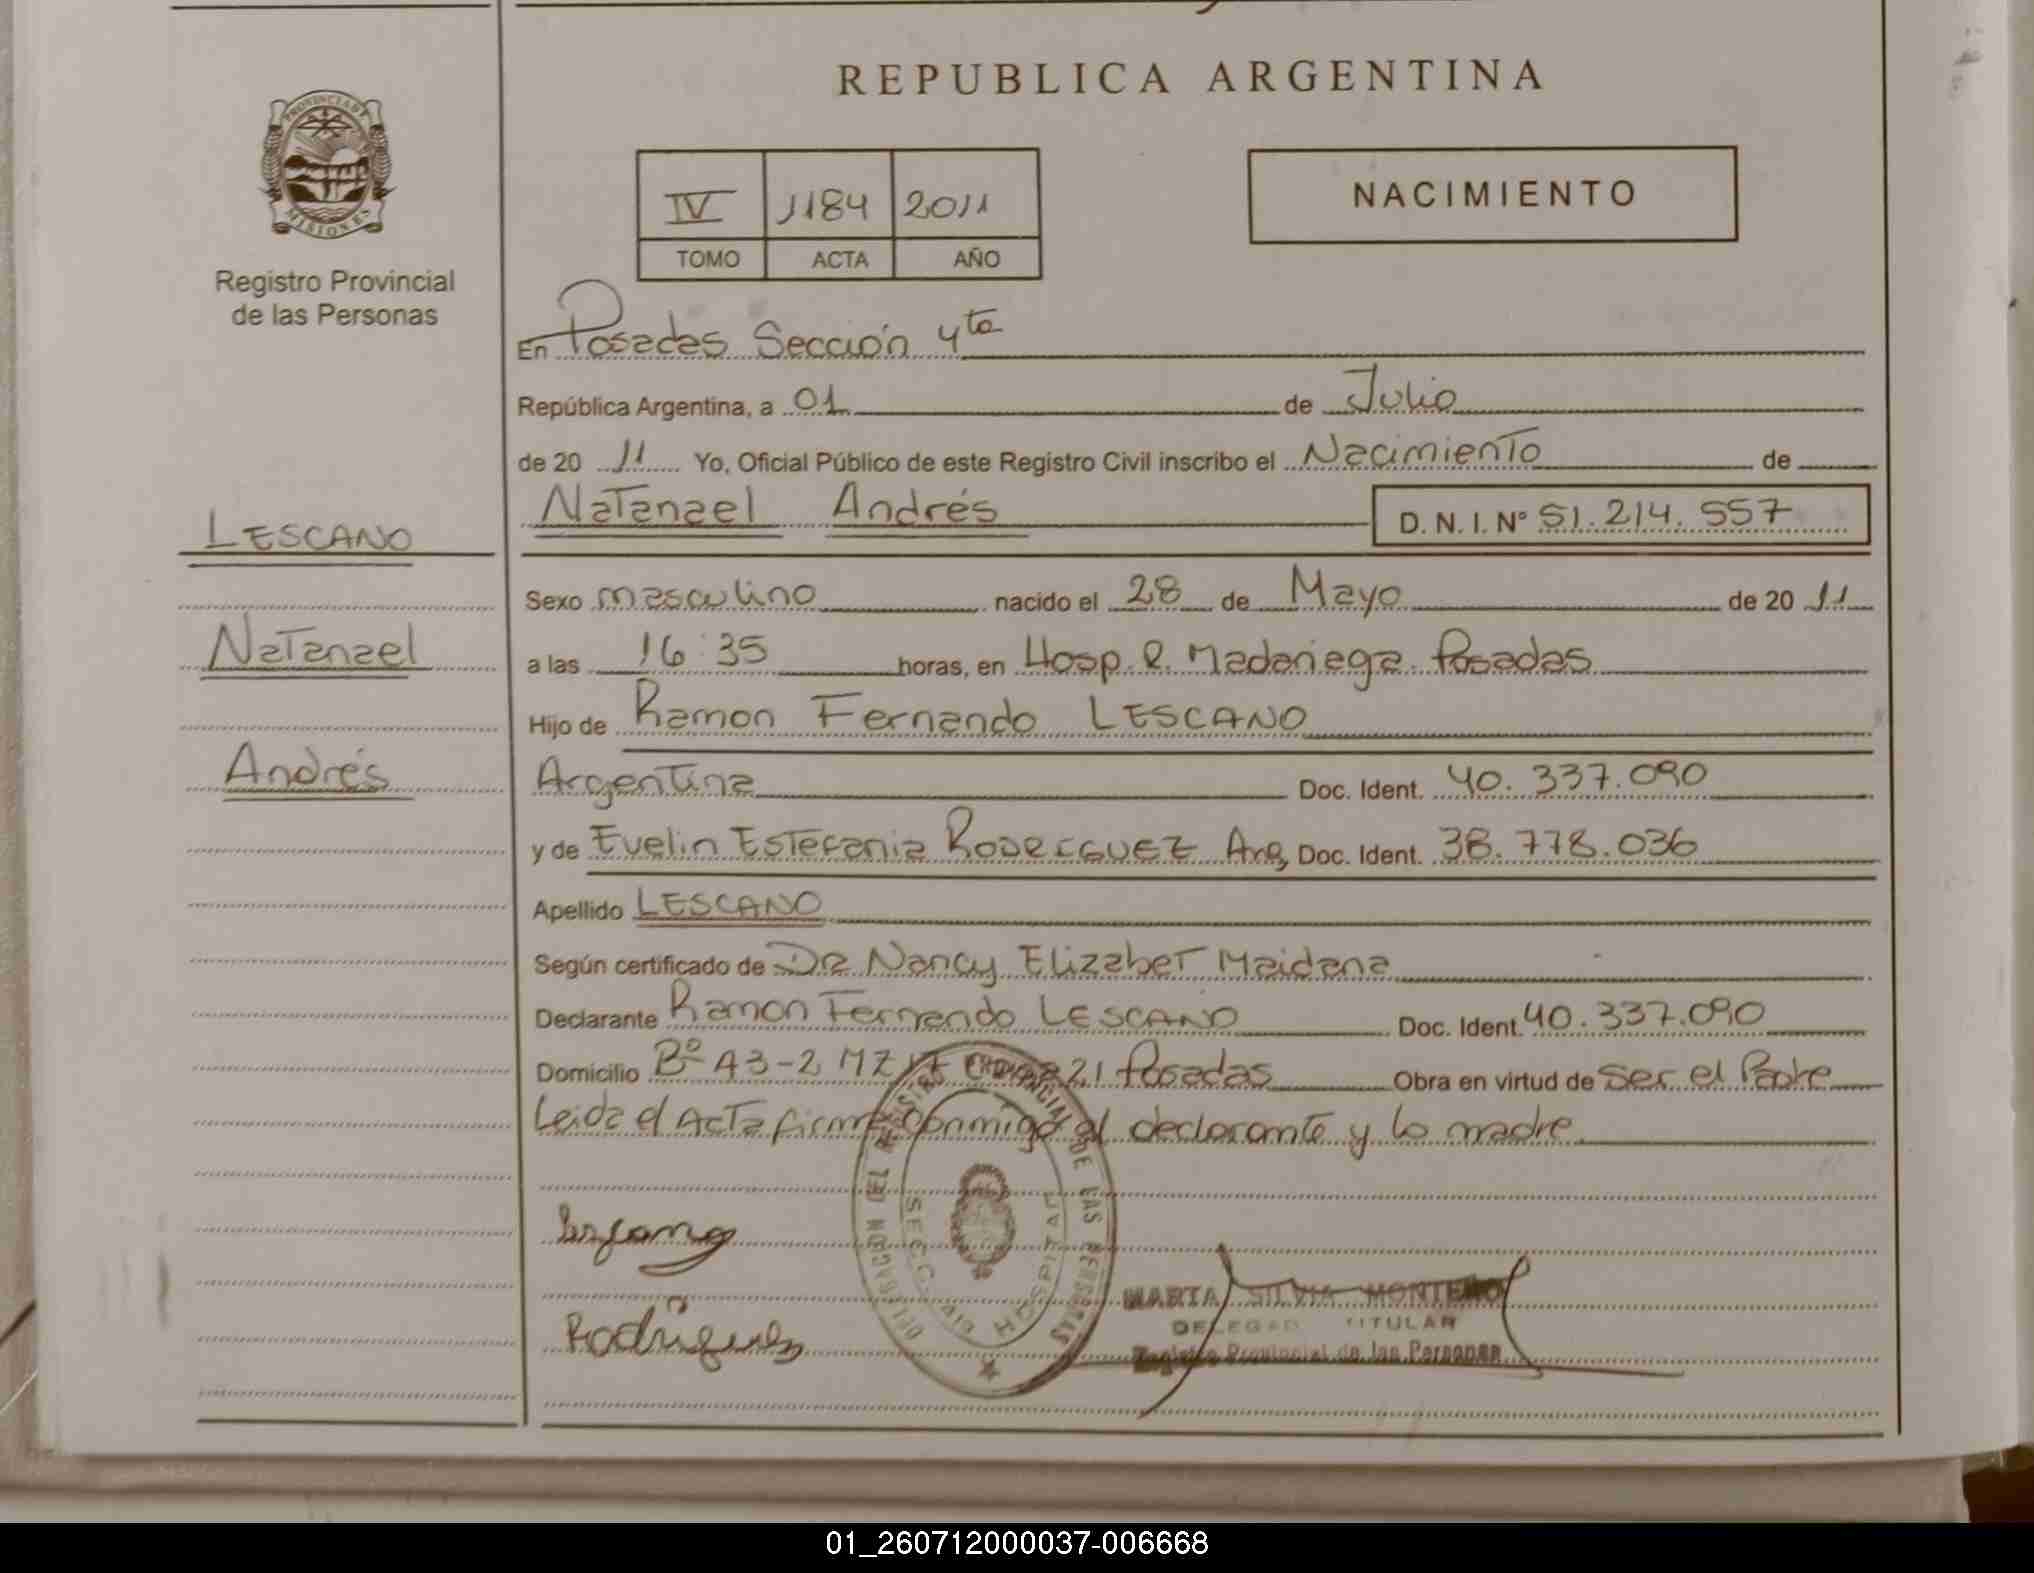 REPUBLICA ARGENTINA
PROVINCIA DE
MISIONES
Registro Provincial
de las Personas
IV 1184 2011
TOMO ACTA AÑO
NACIMIENTO
En Posadas Sección 4ta
República Argentina, a 01 de Julio
de 20 11 Yo, Oficial Público de este Registro Civil inscribo el Nacimiento de
Natanael Andrés D.N.I. Nº 51.214.557
LESCANO
Natanael
Andrés
Sexo masculino nacido el 28 de Mayo de 20 11
a las 16:35 horas, en Hosp. R. Madariega. Posadas
Hijo de Ramon Fernando LESCANO
Argentina Doc. Ident. 40.337.090
y de Evelin Estefania RODRIGUEZ Arg, Doc. Ident. 38.778.036
Apellido LESCANO
Según certificado de Dra Nancy Elizabet Maidana
Declarante Ramon Fernando LESCANO Doc. Ident. 40.337.090
Domicilio Bº A3-2 MZ 21 Posadas Obra en virtud de ser el Padre
Leida el Acta firma conmigo el declarante y la madre
Lescano
Rodriguez
DELEGACION DEL REGISTRO PROVINCIAL DE LAS PERSONAS
SECC. 4ta HOSPITAL
MARTA SILVIA MONTERO
DELEGADA TITULAR
Registro Provincial de las Personas
01_260712000037-006668